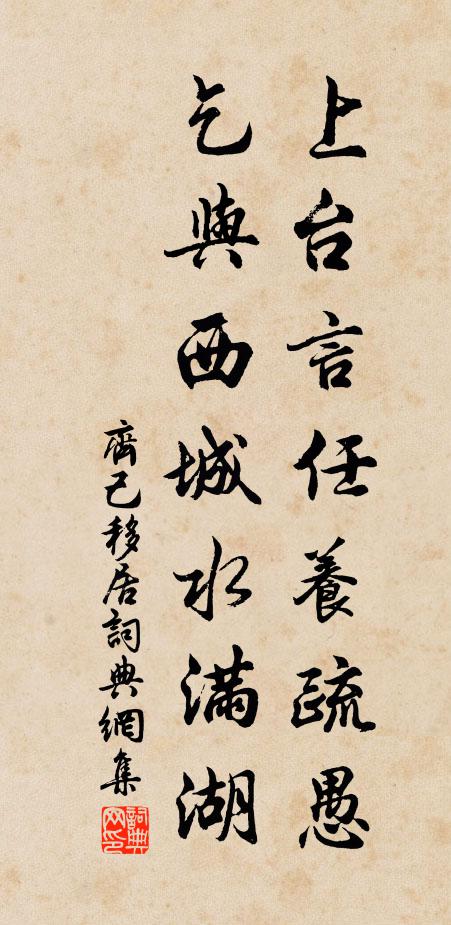 上台言任養疏愚
乞與西城水滿湖
齊己移居詞典網集
詞典网印